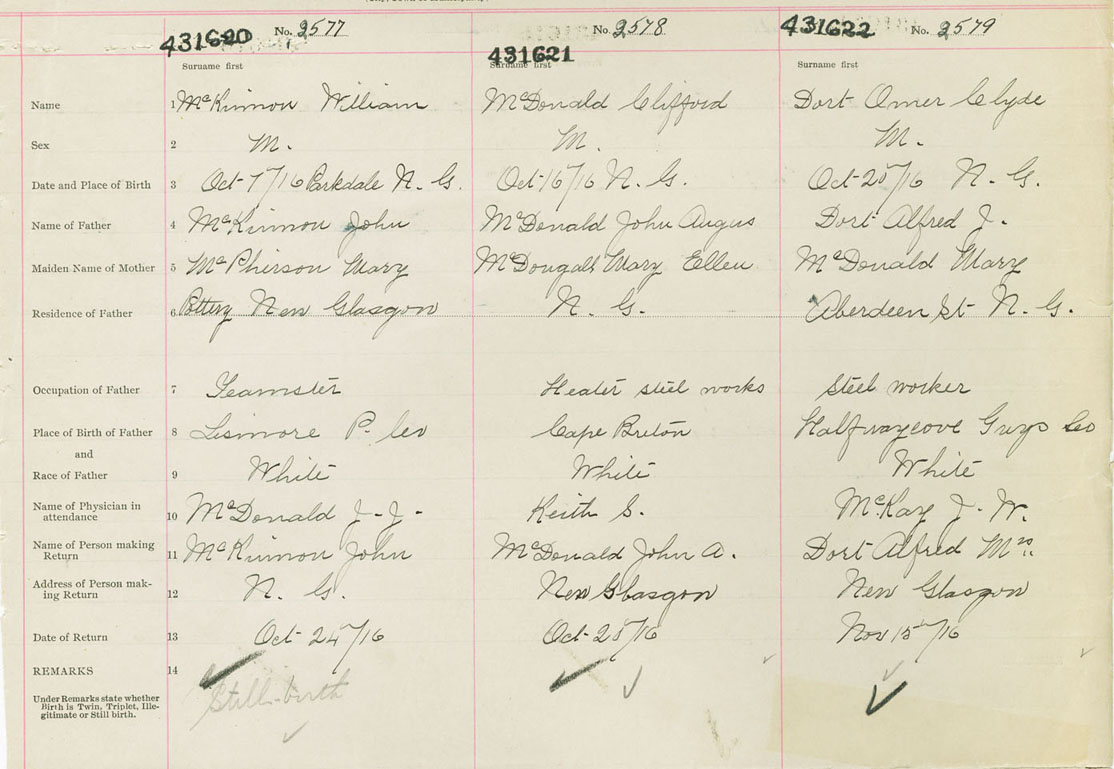 431620 No. 2577 431621 No. 2578 431622 No. 2579
Surname first Surname first Surname first
Name 1 McKinnon William McDonald Clifford Dort Omer Clyde
Sex 2 M. M. M.
Date and Place of Birth 3 Oct 7/16 Parkdale N. G. Oct 16/16 N. G. Oct 25/16 N. G.
Name of Father 4 McKinnon John McDonald John Angus Dort Alfred J.
Maiden Name of Mother 5 McPhierson Mary McDougall Mary Ellen McDonald Mary
Residence of Father 6 Pottery New Glasgow N. G. Aberdeen St N. G.
Occupation of Father 7 Teamster Heater steel works Steel worker
Place of Birth of Father 8 Lismore P. Co Cape Breton Halfwaycove Guys Co
and
Race of Father 9 White White White
Name of Physician in
attendance 10 McDonald J. J. Keith S. McKay J. W.
Name of Person making
Return 11 McKinnon John McDonald John A. Dort Alfred Mrs
Address of Person mak-
ing Return 12 N. G. New Glasgow New Glasgow
Date of Return 13 Oct 24/16 Oct 25/16 Nov 15/16
REMARKS 14
Still-birth
Under Remarks state whether
Birth is Twin, Triplet, Ille-
gitimate or Still birth.